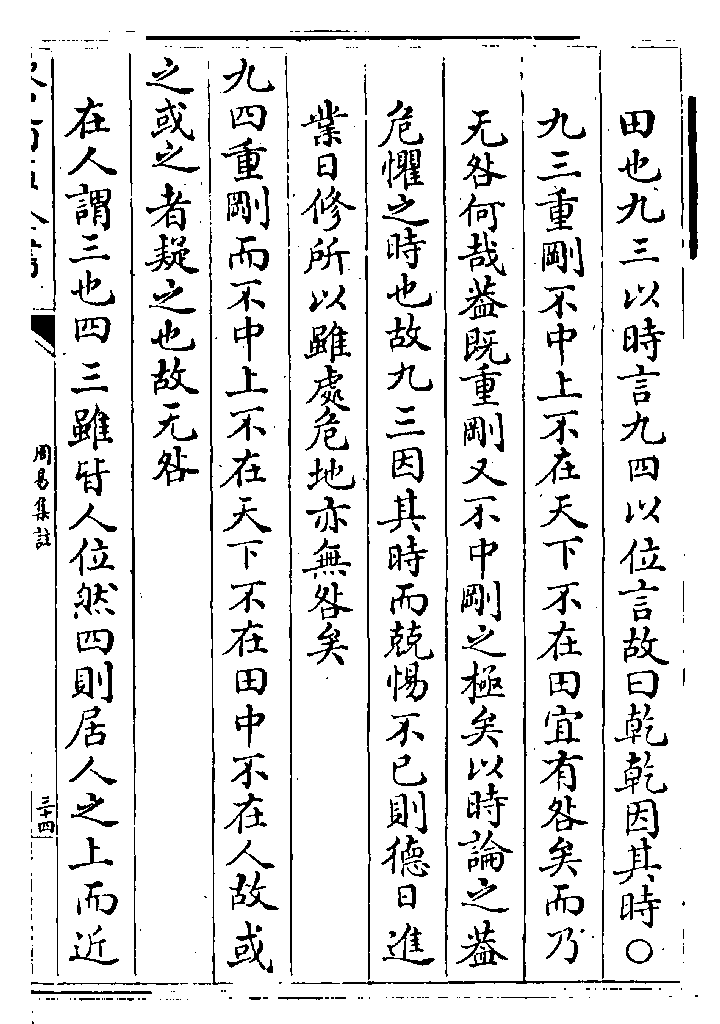 田也九三以時言九四以位言故曰乾乾因其時〇
九三重剛不中上不在天下不在田宜有咎矣而乃
无咎何哉葢既重剛又不中剛之極矣以時論之葢
危懼之時也故九三因其時而兢惕不已則德日進
業日修所以雖處危地亦無咎矣
九四重剛而不中上不在天下不在田中不在人故或
之或之者疑之也故无咎
在人謂三也四三雖皆人位然四則居人之上而近
周易集註
三十四